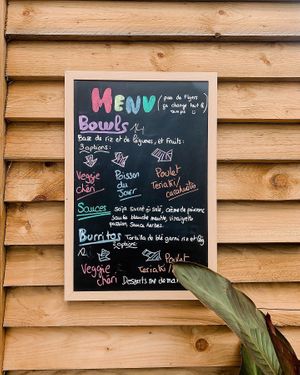 MENU (pas de flyers
ça change tout le
temps
Bowls 14
Base de riz et de légumes, et fruits:
3 options:
Veggie
chéri
Poisson
du
Jour
Poulet
Teriaki/
cacahuète
Sauces soja sucré & salé, crème de poivrons
blanche menthe, vinaigrette
passion, Sauce herbes.
Burritos Tortilla de blé garni riz et
12
3 options:
Veggie
chéri
Poulet
Teriaki/
Desserts